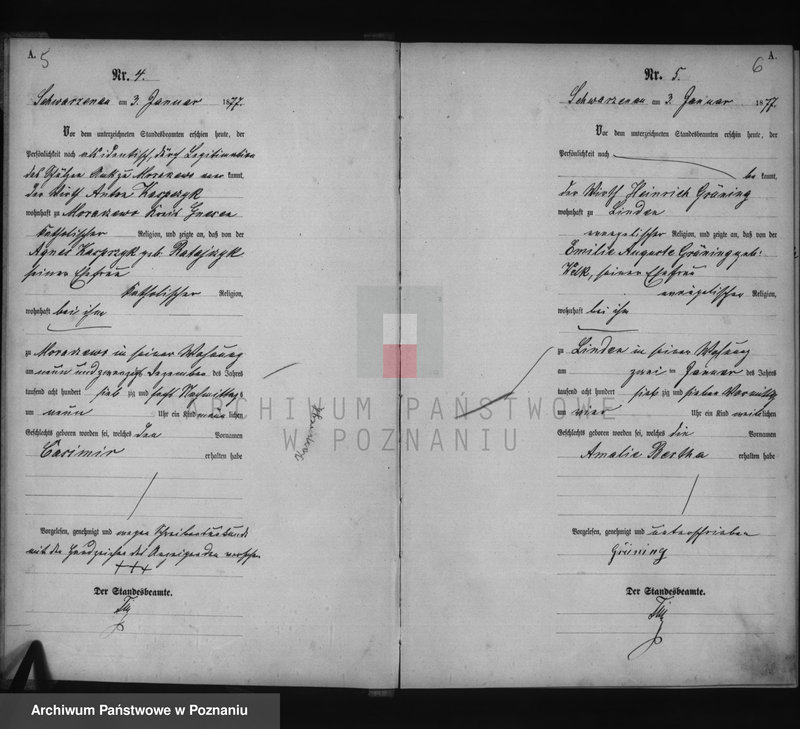 A.
5
Nr. 4.
Schwarzenau am 3. Januar 1877.
Vor dem unterzeichneten Standesbeamten erschien heute, der
Persönlichkeit nach durch Legitimation
des zu Morakowo kannt,
der Wirth Anton Kasprzyk
wohnhaft zu Morakowo Kreis Gnesen
katholischer Religion, und zeigte an, daß von der
Agnes Kasprzyk geb. Ratajczyk
seiner Ehefrau
katholischer Religion,
wohnhaft bei ihm
zu Morakowo in seiner Wohnung
am neun und zwanzigsten Dezember des Jahres
tausend acht hundert sieb zig und sechs Nachmittags
um neun Uhr ein Kind männlichen
Geschlechts geboren worden sei, welches den Vornamen
Casimir erhalten habe
Vorgelesen, genehmigt und wegen Schreibensunkunde
mit den Handzeichen des Anzeigenden versehen
+++
Der Standesbeamte.
A.
6
Nr. 5.
Schwarzenau am 3. Januar 1877.
Vor dem unterzeichneten Standesbeamten erschien heute, der
Persönlichkeit nach
be kannt,
der Wirth Heinrich Grüning
wohnhaft zu Linden
evangelischer Religion, und zeigte an, daß von der
Emilie Auguste Grüning geb:
Wilk, seiner Ehefrau
evangelischer Religion,
wohnhaft bei ihm
zu Linden in seiner Wohnung
am zwei ten Januar des Jahres
tausend acht hundert sieb zig und sieben Vormittags
um vier Uhr ein Kind weiblichen
Geschlechts geboren worden sei, welches die Vornamen
Amalie Bertha erhalten habe
Vorgelesen, genehmigt und unterschrieben
Grüning
Der Standesbeamte.
ARCHIWUM PAŃSTWOWE
W POZNANIU
Archiwum Państwowe w Poznaniu